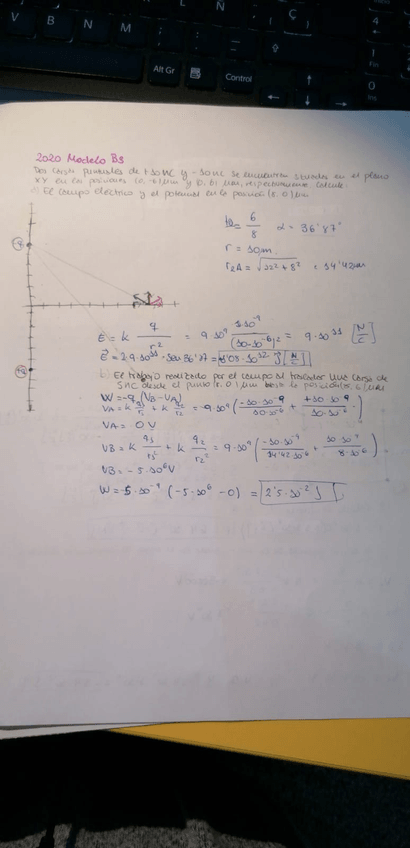 V B N M
Alt Gr
Control
Ñ
Ç
2020 Modelo B3
Dos cargas puntuales de +10 nC y -10 nC se encuentran situadas en el plano
XY en las posiciones (0, -6) μm y (0, 6) μm, respectivamente. Calcule:
El campo eléctrico y el potencial en la posición (8, 0) μm
-q
+q
= 6/8 α = 36'87°
r = 10 μm
r2A = √12² + 8² = 14'42 μm
E = K q/r² = 9·10⁹ 10·10⁻⁹/(10·10⁻⁶)² = 9·10¹¹ [N/C]
E = 2·9·10¹¹ · sen 36'87 = 1'08·10¹² J [N/C]
b. El trabajo realizado por el campo al trasladar una carga de
5 nC desde el punto (8, 0) μm hasta la posición (8, 6) μm
W = -q (VB - VA)
VA = K q1/r1 + K q2/r2 = 9·10⁹ (-10·10⁻⁹/10·10⁻⁶ + +10·10⁻⁹/10·10⁻⁶)
VA = 0 V
VB = K q1/r1 + K q2/r2 = 9·10⁹ (-10·10⁻⁹/14'42·10⁻⁶ + 10·10⁻⁹/8·10⁻⁶)
VB = -5·10⁶ V
W = -5·10⁻⁹ (-5·10⁶ - 0) = 2'5·10⁻² J